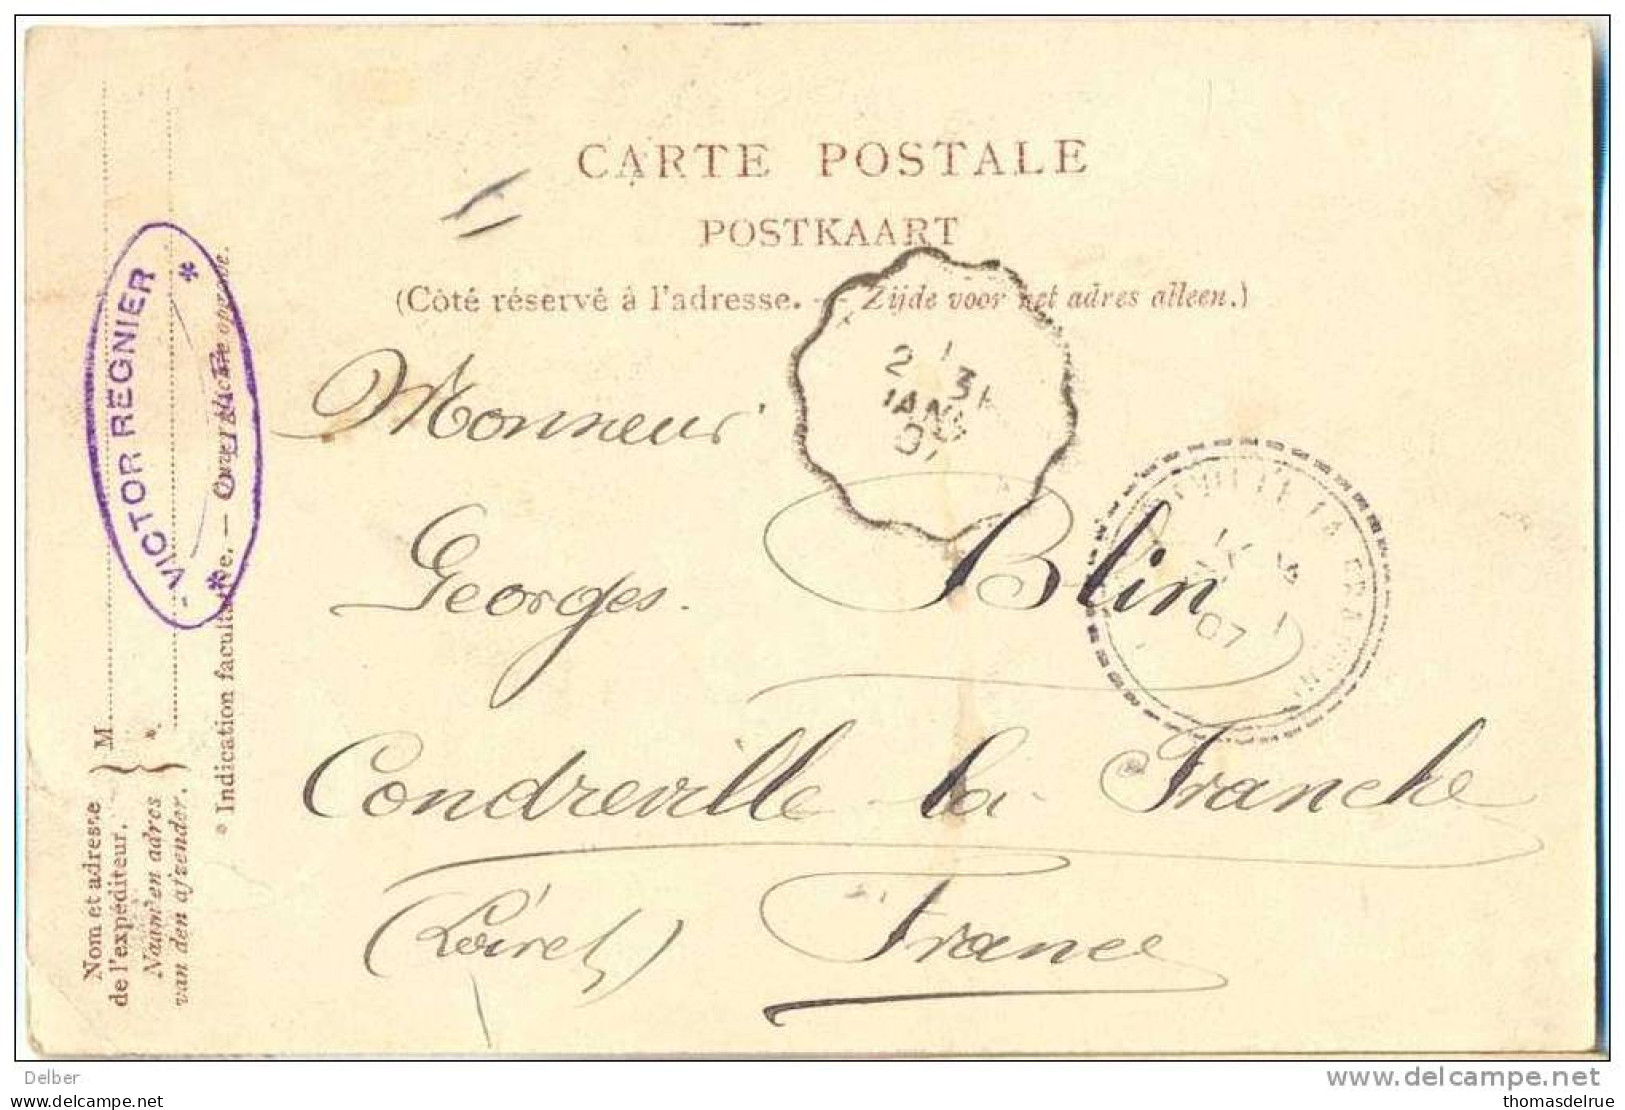 CARTE POSTALE
POSTKAART
(Côté réservé à l'adresse. — Zijde voor het adres alleen.)
Monsieur
Georges Blin
Condreville la Franche
(Loiret) France
VICTOR REGNIER
Nom et adresse
de l'expéditeur.
Naam en adres
van den afzender.
M
* Indication facultative. —
2
31
JANV
07
07
Delber
belgium
www.delcampe.net
thomasdelrue